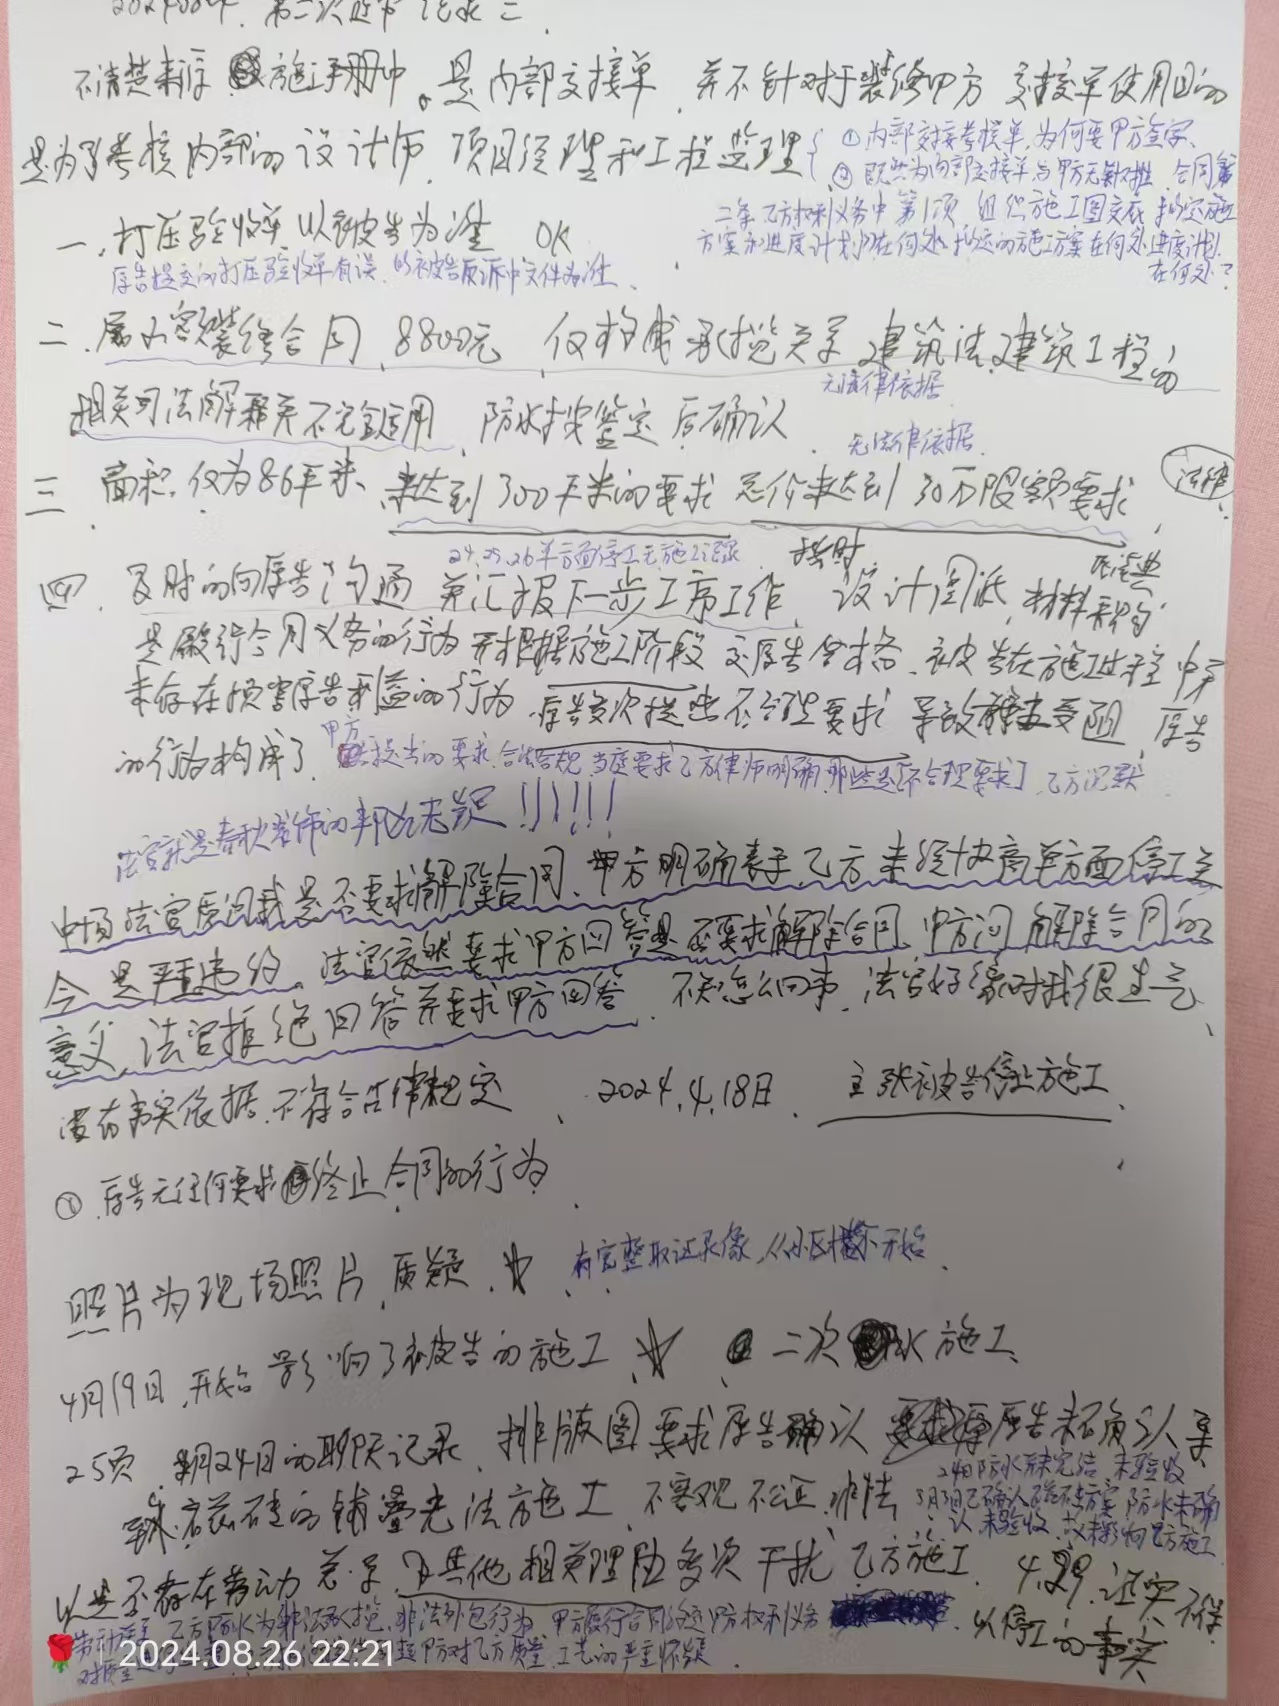 第二次庭审 记录 二
不清楚来源 施工手册中。是内部交接单，并不针对于装修甲方 交接单使用目的
是为了考核内部的设计师，项目经理和工程监理
①内部交接考核单，为何要甲方签字、
②既然为内部交接单与甲方无 合同第
二条乙方权利义务中第1项 组织施工图交底 拟定施工
方案和进度计划 在何处 拟定的施工方案在何处 进度计划
在何处？
一．打压验收单 以被告为准 OK
原告提交的打压验收单有误，以被告质证中文件为准、
二．属小额装修合同，8800元 仅构成承揽关系 建筑法 建筑工程的
无法律依据
相关司法解释关不完全适用，防水 鉴定 后确认
无法律依据
三．面积，仅为86平米、未达到300平米的要求 总价未达到30万限额要求
法律
24.25.26单方面停工无施工记录
按时
四．及时的向原告沟通 并汇报下一步工序工作，设计图纸，材料
是履行合同义务的行为 并根据施工阶段 交原告 合格、被告在施工过程中
未存在损害原告利益的行为，原告多次提出不合理要求 导致 受阻，原告
的行为构成了
甲方 提出的要求，合法合规，当庭要求乙方律师明确，那些是不合理要求，乙方沉默
法官就是春秋装饰的 ！！！！！
中场法官质问我是否要求解除合同，甲方明确表示，乙方未经协商单方面停工至
今 是严重违约，法官依然要求甲方回答是否要求解除合同，甲方问 解除合同的
意义，法官拒绝回答并要求甲方回答，不知怎么回事，法官好像对我很生气、
没有事实依据，不符合法律规定 、2024.4.18日、主张被告停止施工、
①．原告无任何要求 终止合同的行为
照片为现场照片，质疑， 有完整取证录像，从小区 开始、
4月19日，开始 影响了被告的施工、 二次 水施工、
25项 4月24日的聊天记录，排版图要求原告确认 原告未确认
瓷砖的铺叠 无法方施工，不客观 不公正，非法
24日防水未完结 未验收
3月 已确认 方案 防水未确
认 未验收 故未影响乙方施工
以是否存在劳动关系，及其他相关理由多次干扰乙方施工，4.29．证实 不
以停工的事实
乙方防水为非法承揽，非法外包行为，甲方履行合同 权利义务
甲方对乙方质量，工艺的严重怀疑．
2024.08.26 22:21